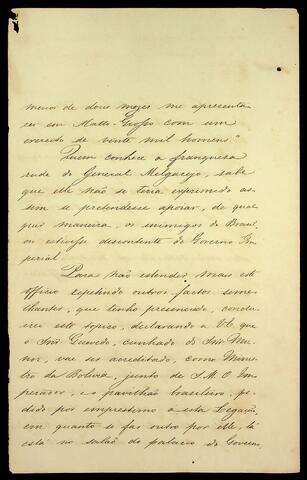 menos de dous mezes me apresenta-
rei em Matto-Grosso com um
exercito de vinte mil homens"
Quem conhece a franqueza
rude do General Melgarejo, sabe
que elle não se teria exprimido as-
sim se pretendesse apoiar, de qual
quer maneira, os inimigos do Brasil,
ou estivesse descontente do Governo Im-
perial.
Para não estender mais este
officio repetindo outros factos seme-
lhantes, que tenho presenciado, conclu-
irei este topico, declarando a V. Ex. que
o Snr Quevedo, cunhado do Snr Mu-
noz, vae ser acreditado, como Minis-
tro da Bolivia, junto de S. M. O Im-
perador, e o pavilhão brasileiro, pe-
dido por emprestimo a esta Legação,
em quanto se faz outro por elle, lá
está no salão do palacio do Govern.